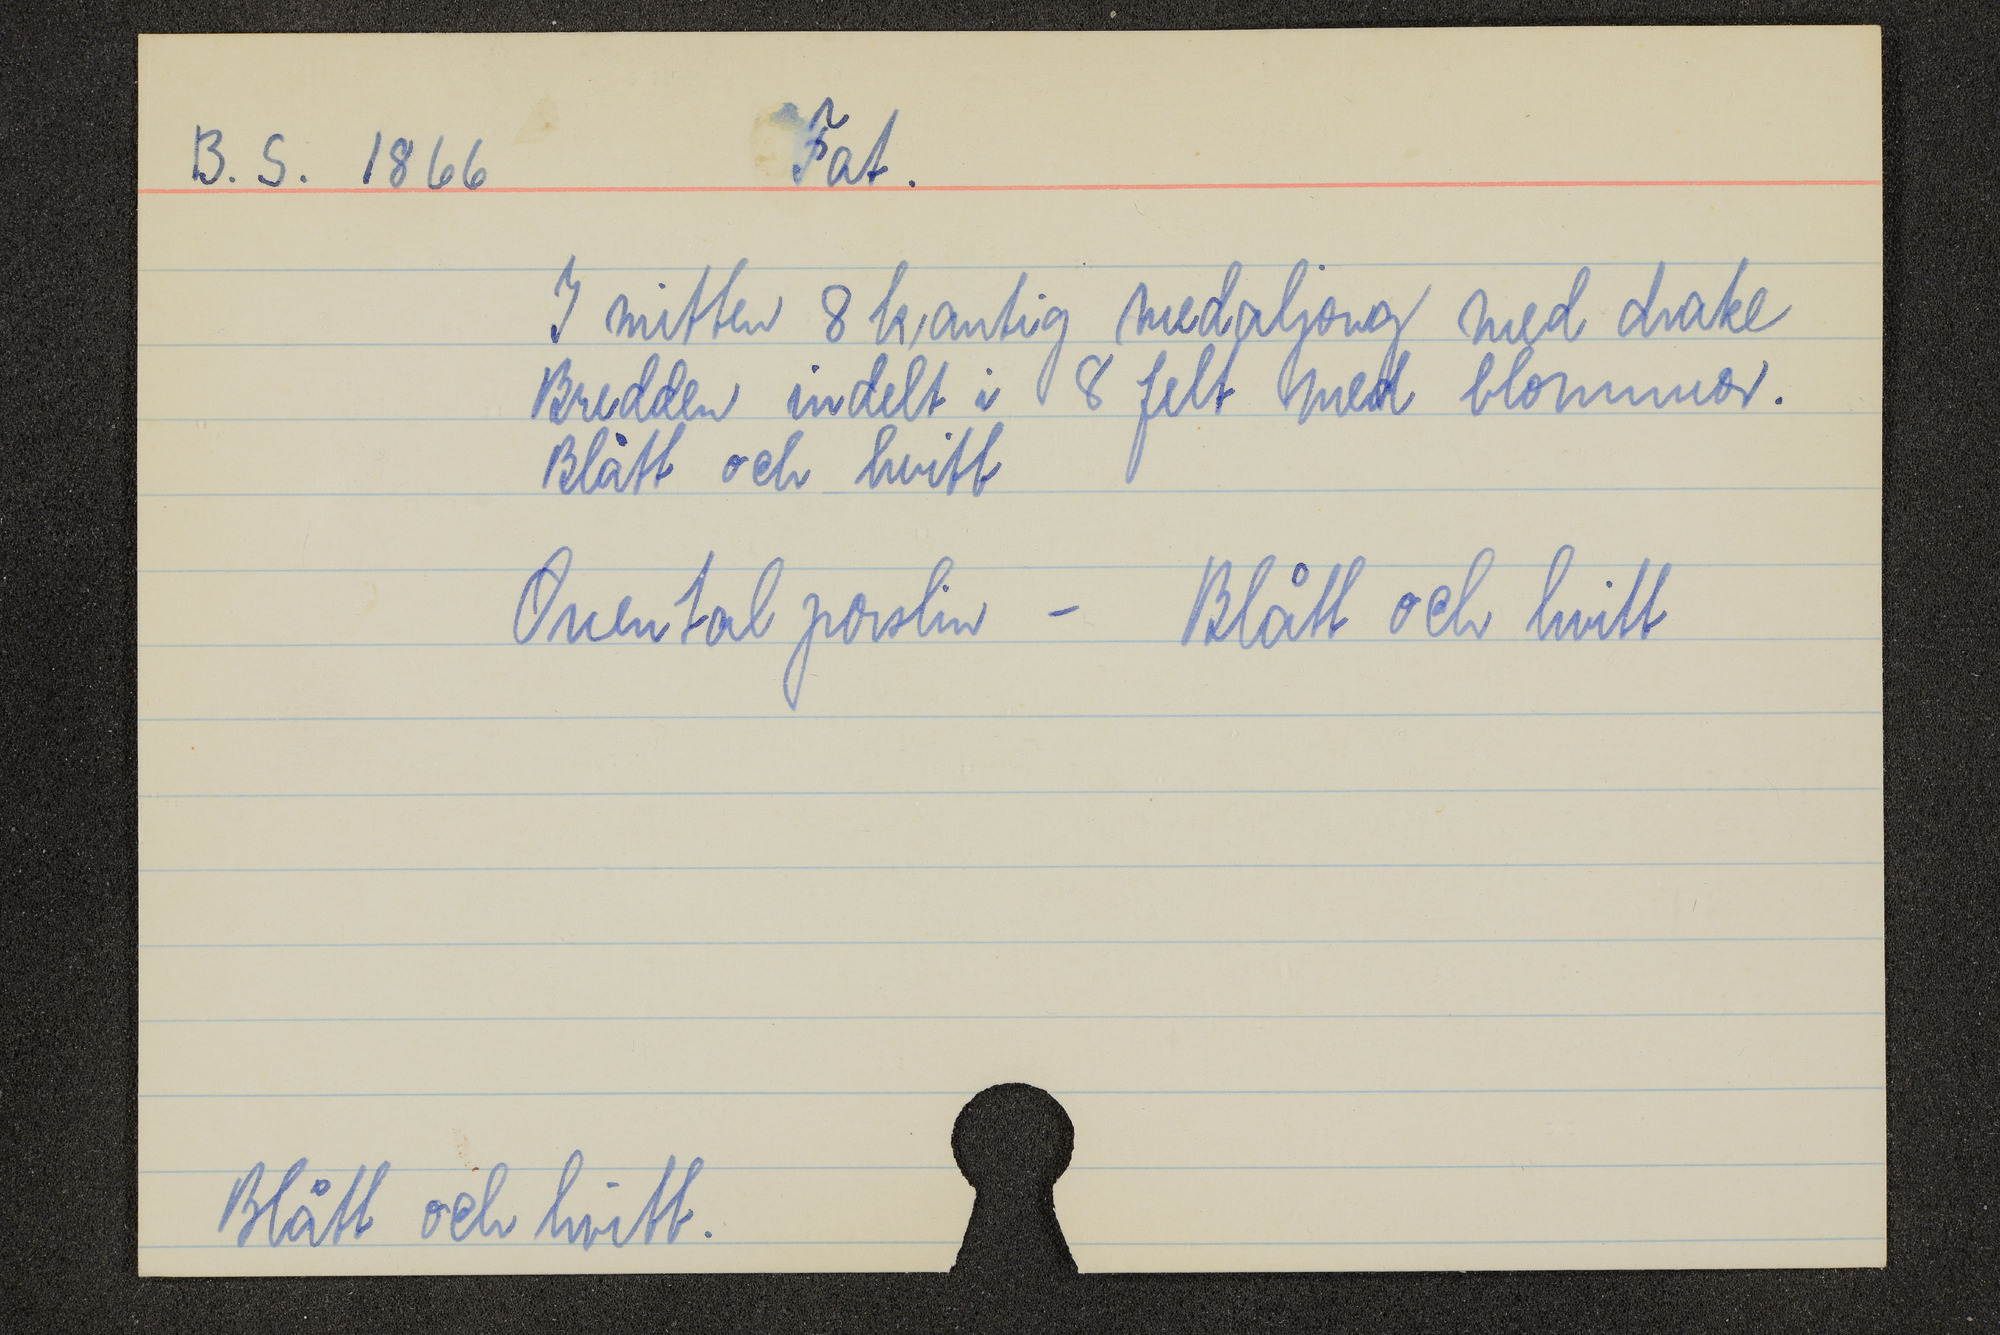 B. S. 1866 Fat.
I mitten 8 kantig medaljong med drake
Bredden indelt i 8 felt med blommor.
Blått och hvitt
Oriental porslin - Blått och hvitt
Blått och hvitt.